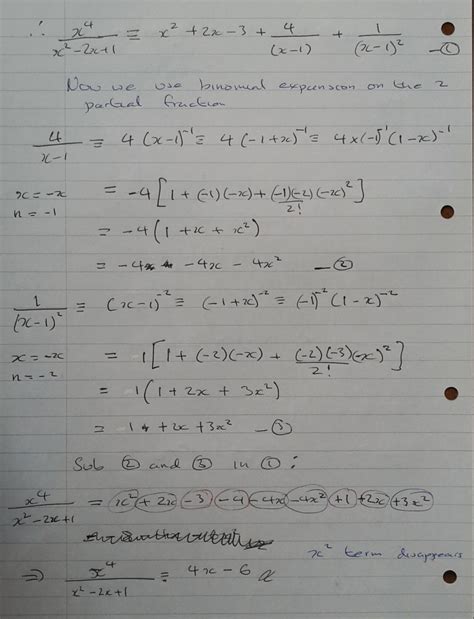 ∴ x⁴/(x²-2x+1) ≡ x² + 2x - 3 + 4/(x-1) + 1/(x-1)² —①
Now we use binomial expansion on the 2
partial fraction
4/(x-1) ≡ 4(x-1)⁻¹ ≡ 4(-1+x)⁻¹ ≡ 4×(-1)⁻¹(1-x)⁻¹
x = -x = -4[1 + (-1)(-x) + (-1)(-2)(-x)²/2!]
n = -1
= -4(1 + x + x²)
= -4 - 4x - 4x² —②
1/(x-1)² ≡ (x-1)⁻² ≡ (-1+x)⁻² ≡ (-1)⁻²(1-x)⁻²
x = -x = 1[1 + (-2)(-x) + (-2)(-3)(-x)²/2!]
n = -2
= 1(1 + 2x + 3x²)
= 1 + 2x + 3x² —③
Sub ② and ③ in ① :
x⁴/(x²-2x+1) = x² + 2x - 3 - 4 - 4x - 4x² + 1 + 2x + 3x²
x² term disappears
⇒ x⁴/(x²-2x+1) ≡ 4x - 6